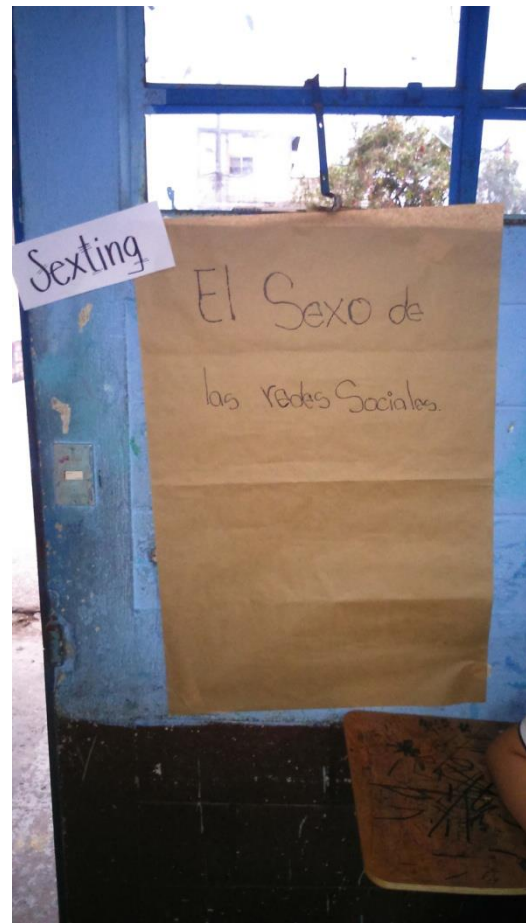 Sexting
El Sexo de
las redes Sociales.